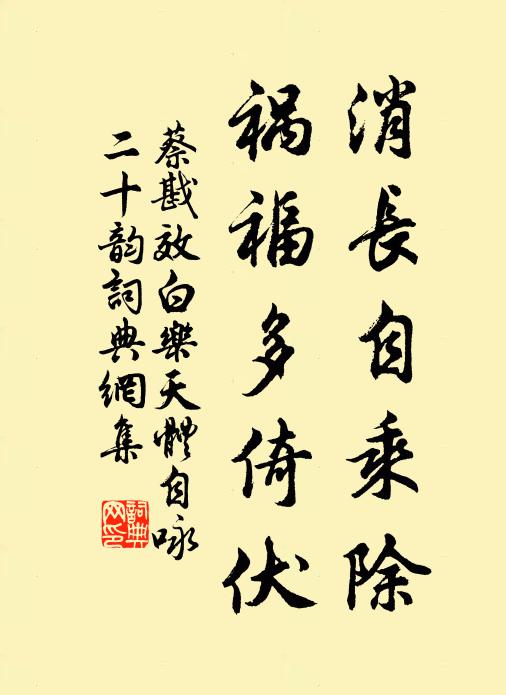 消長自乘除
禍福多倚伏
蔡戡效白樂天體自咏
二十韵詞典網集
詞典
网印